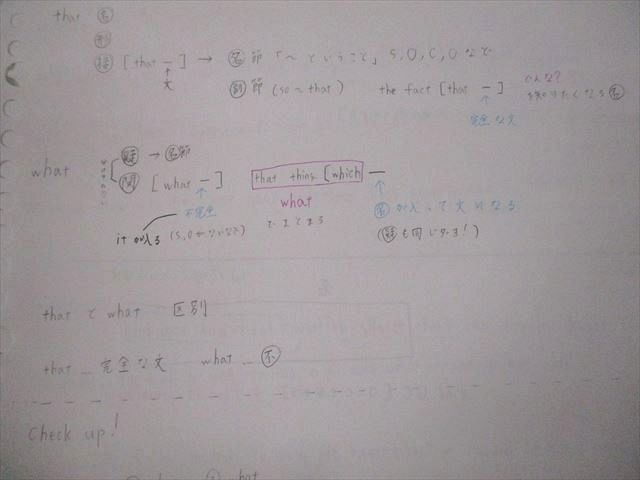 that 名
形
接 [that —] → 名節「〜ということ」S,O,C,Oなど
文
副節 (so〜that) the fact [that —] どんな?
完全な文
what 疑 → 名節
関 [what —] that thing [which —
不完全 what 名が入って文になる
it が入る (S,Oがないなど) でまとまる (疑も同じ
that と what 区別
that … 完全な文 what … 不
Check up!
what